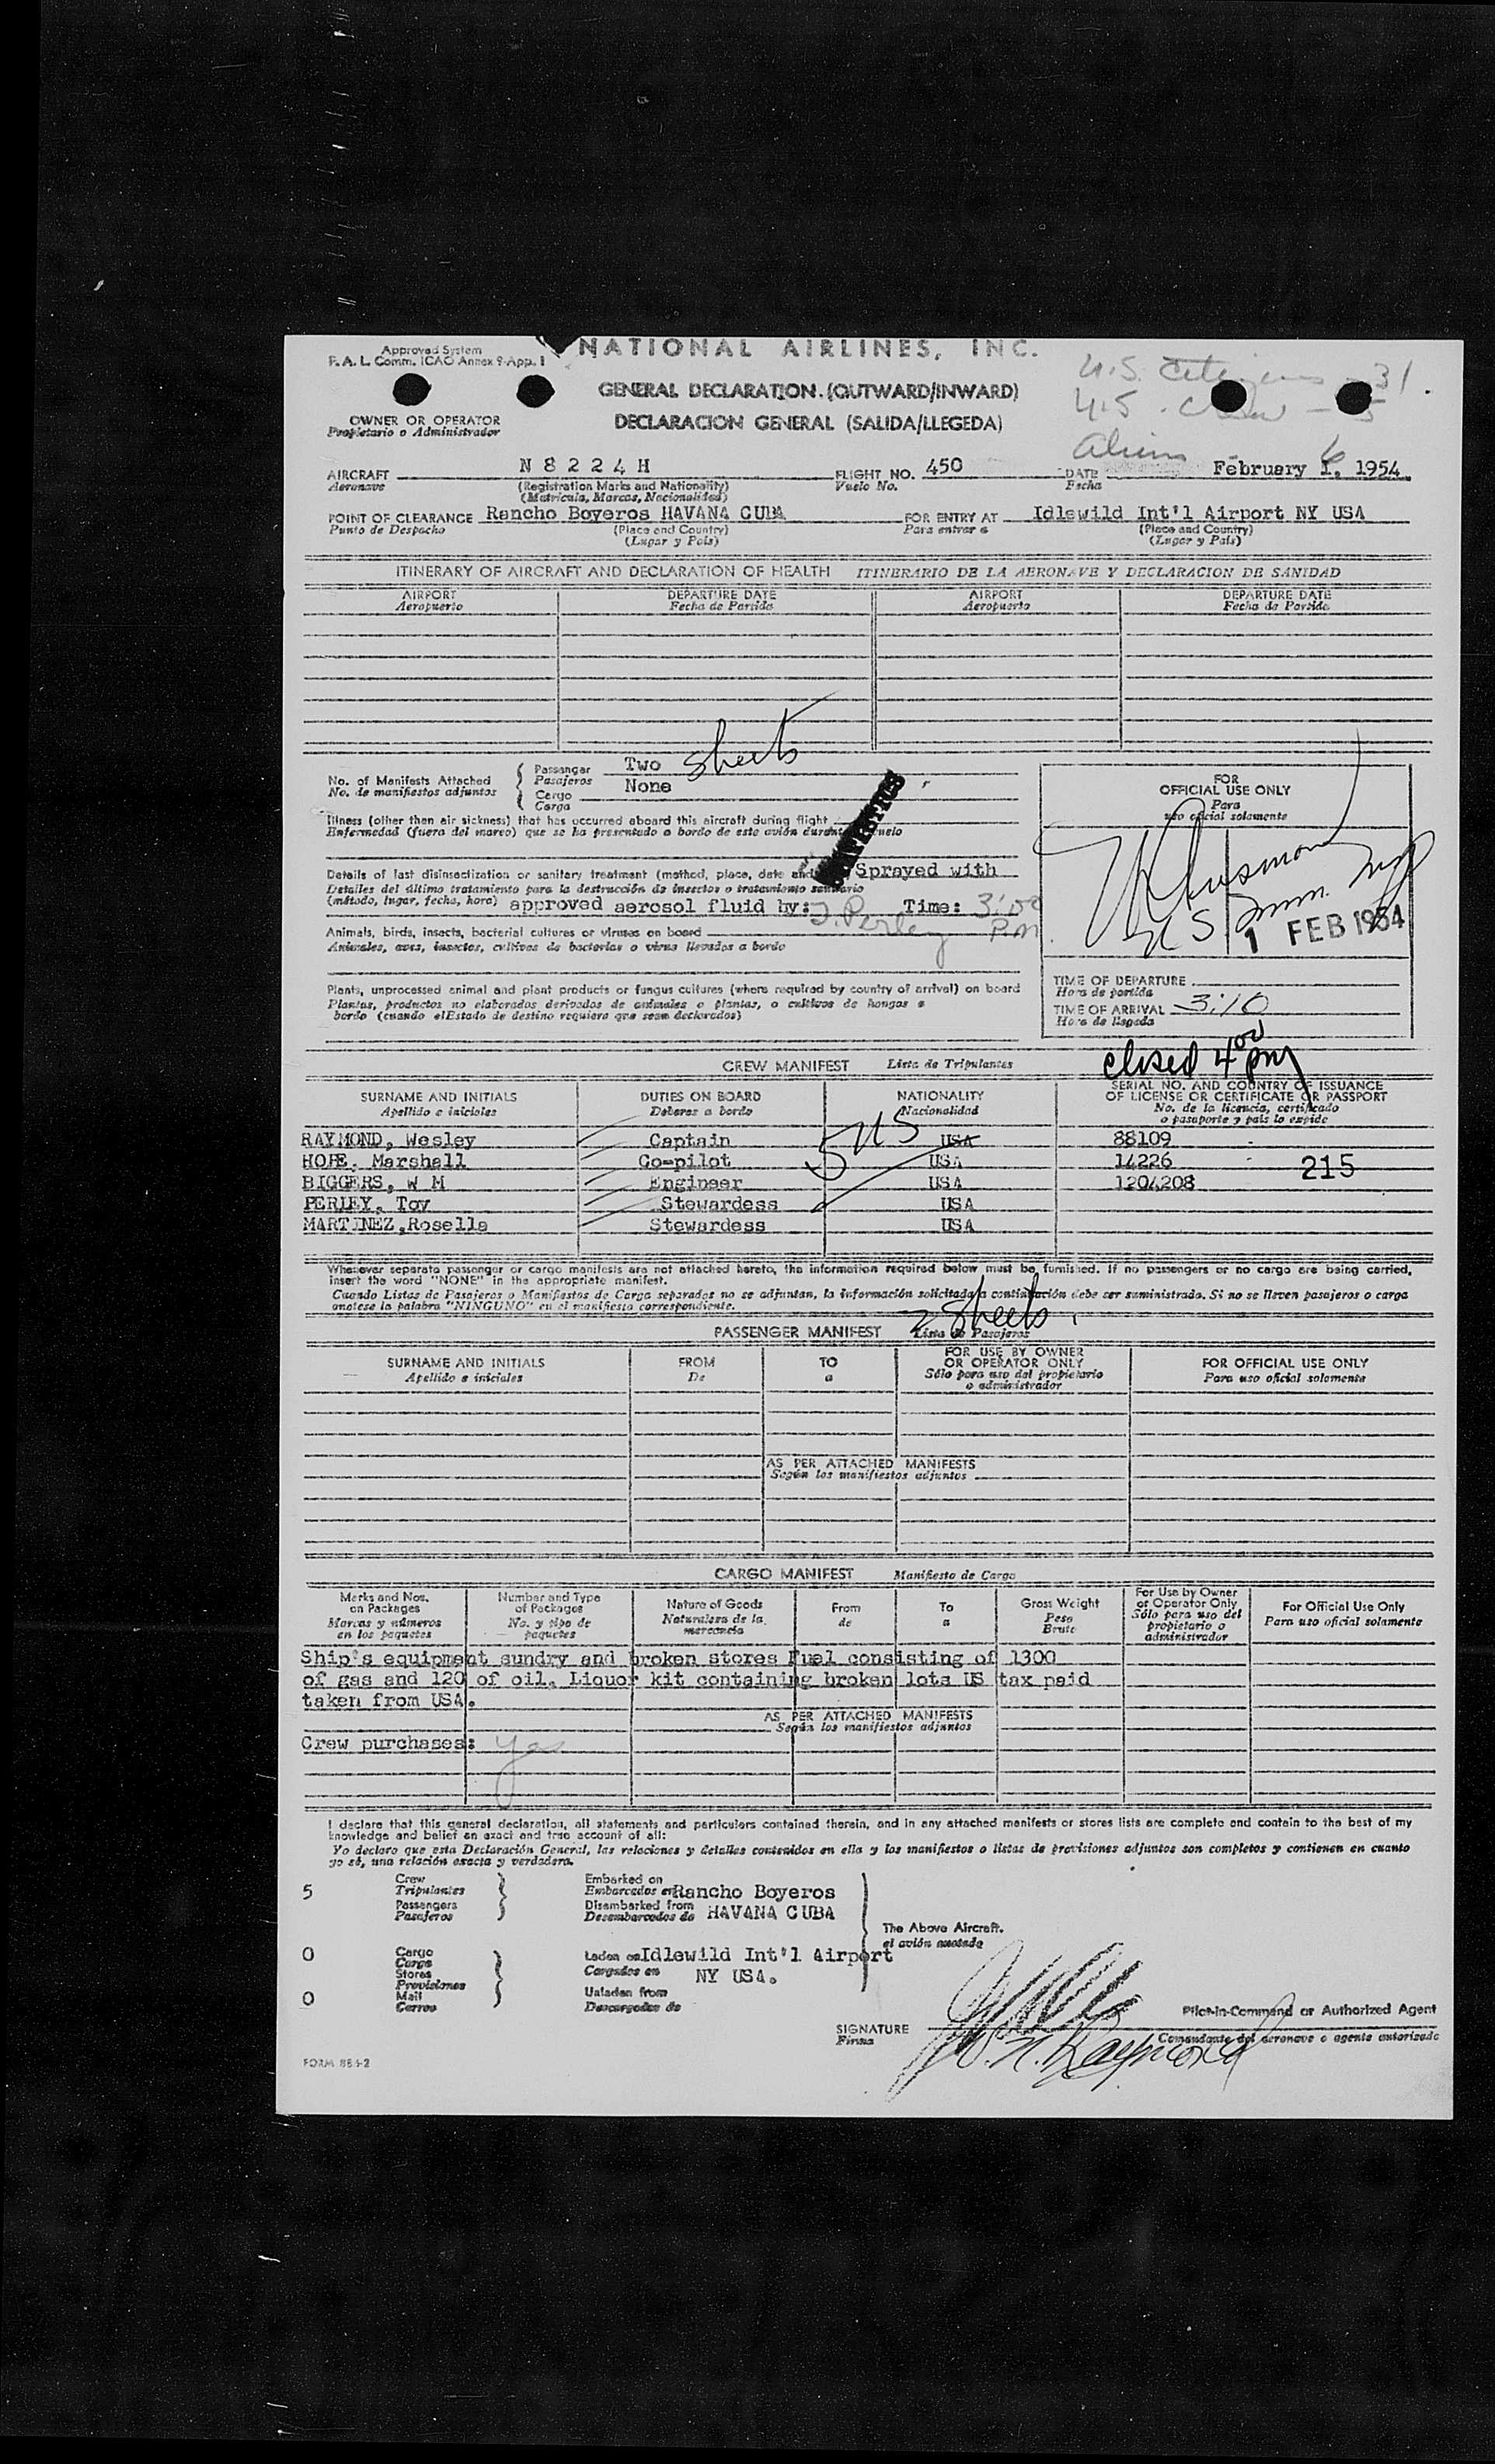 Approved System
F. A. L. Comm. ICAO Annex 9-App. 1
NATIONAL AIRLINES, INC.
U.S. Citizens - 31
U.S. Crew - 5
Aliens - 6
GENERAL DECLARATION. (OUTWARD/INWARD)
DECLARACION GENERAL (SALIDA/LLEGEDA)
OWNER OR OPERATOR
Propietario o Administrador
AIRCRAFT N 8 2 2 4 H FLIGHT NO. 450 DATE February 1, 1954
Aeronave (Registration Marks and Nationality) Vuelo No. Fecha
(Matricula, Marcas, Nacionalidad)
POINT OF CLEARANCE Rancho Boyeros HAVANA CUBA FOR ENTRY AT Idlewild Int'l Airport NY USA
Punto de Despacho (Place and Country) Para entrar a (Place and Country)
(Lugar y Pais) (Lugar y Pais)
ITINERARY OF AIRCRAFT AND DECLARATION OF HEALTH ITINERARIO DE LA AERONAVE Y DECLARACION DE SANIDAD
AIRPORT DEPARTURE DATE AIRPORT DEPARTURE DATE
Aeropuerto Fecha de Partida Aeropuerto Fecha de Partida
No. of Manifests Attached
No. de manifiestos adjuntos
Passenger Two sheets
Pasajeros
Cargo None
Carga
Illness (other than air sickness) that has occurred aboard this aircraft during flight
Enfermedad (fuera del mareo) que se ha presentado a bordo de este avión durante vuelo
Details of last disinsectization or sanitary treatment (method, place, date and Sprayed with
Detalles del último tratamiento para la destrucción de insectos o tratamiento sanitario
(método, lugar, fecha, hora) approved aerosol fluid by: T. Perley Time: 3:00 PM
Animals, birds, insects, bacterial cultures or viruses on board
Animales, aves, insectos, cultivos de bacterias o virus llevados a bordo
Plants, unprocessed animal and plant products or fungus cultures (where required by country of arrival) on board
Plantas, productos no elaborados derivados de animales o plantas, o cultivos de hongos a
bordo (cuando elEstado de destino requiera que sean declarados)
FOR
OFFICIAL USE ONLY
Para
uso oficial solamente
US Imm.
1 FEB 1954
TIME OF DEPARTURE
Hora de partida
TIME OF ARRIVAL 3:10
Hora de llegada
closed 4 00 pm
CREW MANIFEST Lista de Tripulantes
SURNAME AND INITIALS DUTIES ON BOARD NATIONALITY SERIAL NO. AND COUNTRY OF ISSUANCE
OF LICENSE OR CERTIFICATE OR PASSPORT
Apellido e iniciales Deberes a bordo Nacionalidad No. de la licencia, certificado
o pasaporte y pais lo expide
5 US
RAYMOND, Wesley Captain USA 88109
HOPE, Marshall Co-pilot USA 14226 215
BIGGERS, W M Engineer USA 1204208
PERLEY, Toy Stewardess USA
MARTINEZ, Rosella Stewardess USA
Whenever separate passenger or cargo manifests are not attached hereto, the information required below must be furnished. If no passengers or no cargo are being carried,
insert the word "NONE" in the appropriate manifest.
Cuando Listas de Pasajeros o Manifiestos de Carga separados no se adjuntan, la información solicitada a continuación debe ser suministrada. Si no se lleven pasajeros o carga
anotese la palabra "NINGUNO" en el manifiesto correspondiente.
2 sheets
PASSENGER MANIFEST Lista de Pasajeros
SURNAME AND INITIALS FROM TO FOR USE BY OWNER
OR OPERATOR ONLY FOR OFFICIAL USE ONLY
Apellido e iniciales De a Sólo para uso del propietario
o administrador Para uso oficial solamente
AS PER ATTACHED MANIFESTS
Según los manifiestos adjuntos
CARGO MANIFEST Manifiesto de Carga
Marks and Nos.
on Packages
Marcas y números
en los paquetes
Number and Type
of Packages
No. y tipo de
paquetes
Nature of Goods
Naturaleza de la
mercancia
From
de
To
a
Gross Weight
Peso
Bruto
For Use by Owner
or Operator Only
Sólo para uso del
propietario o
administrador
For Official Use Only
Para uso oficial solamente
Ship's equipment sundry and broken stores Fuel consisting of 1300
of gas and 120 of oil. Liquor kit containing broken lots US tax paid
taken from USA.
AS PER ATTACHED MANIFESTS
Según los manifiestos adjuntos
Crew purchases: yes
I declare that this general declaration, all statements and particulars contained therein, and in any attached manifests or stores lists are complete and contain to the best of my
knowledge and belief an exact and true account of all:
Yo declaro que esta Declaración General, las relaciones y detalles contenidos en ella y los manifiestos o listas de provisiones adjuntos son completos y contienen en cuanto
yo sé, una relación exacta y verdadera.
5 Crew
Tripulantes
Passengers
Pasajeros
Embarked on
Embarcados en Rancho Boyeros
Disembarked from
Desembarcados de HAVANA CUBA
The Above Aircraft.
el avión anotado
0 Cargo
Carga
Stores
Provisiones
0 Mail
Correo
Laden on Idlewild Int'l Airport
Cargados en NY USA.
Unladen from
Descargados de
Pilot-in-Command or Authorized Agent
SIGNATURE
Firma
Comandante del aeronave o agente autorizado
W. H. Raymond
FORM 88.1-2